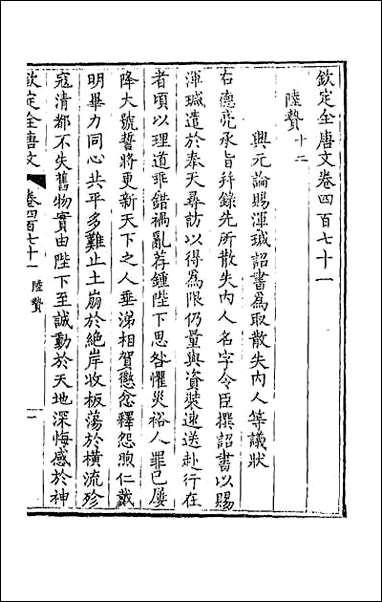 欽定全唐文卷四百七十一
陸贄十二
興元論賜渾瑊詔書為取散失内人等議狀
右德亮承旨幷錄先所散失内人名字令臣撰詔書以賜
渾瑊遣於奉天尋訪以得為限仍量與資裝速送赴行在
者頃以理道乖錯禍亂荐鍾陛下思咎懼災裕人罪己屢
降大號誓將更新天下之人垂涕相賀懲忿釋怨煦仁戴
明畢力同心共平多難止土崩於絕岸收板蕩於橫流殄
寇清都不失舊物實由陛下至誠動於天地深悔感於神
欽定全唐文
卷四百七十一
陸贄
一